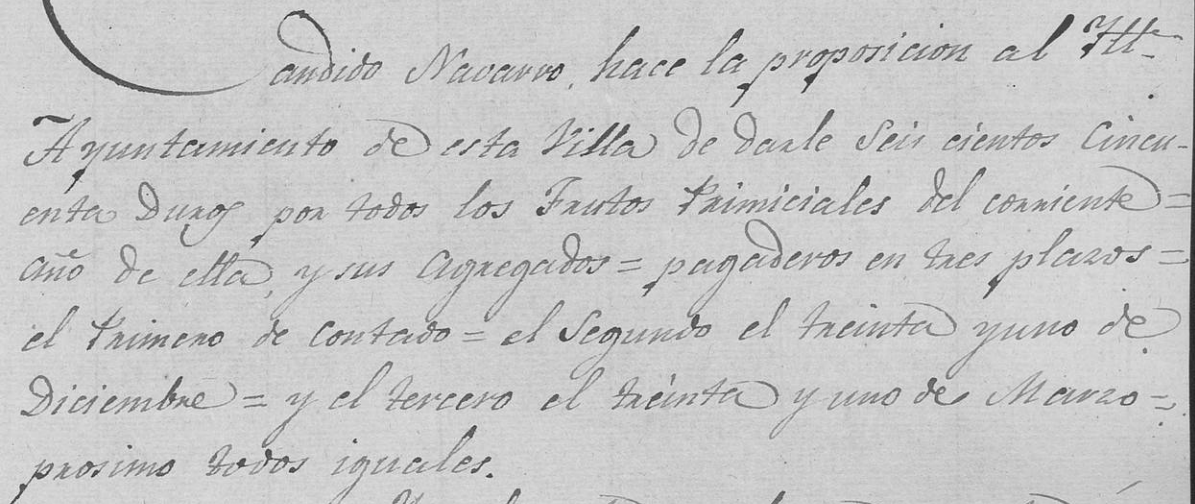 Candido Navarro, hace la proposicion al Ille
Ayuntamiento de esta Villa de darle Seis cientos Cincu-
enta Duros por todos los Frutos Primiciales del corriente =
año de ella, y sus Agregados = pagaderos en tres plazos =
el Primero de Contado = el Segundo el treinta y uno de
Diciembre = y el tercero el treinta y uno de Marzo =
prosimo todos iguales.